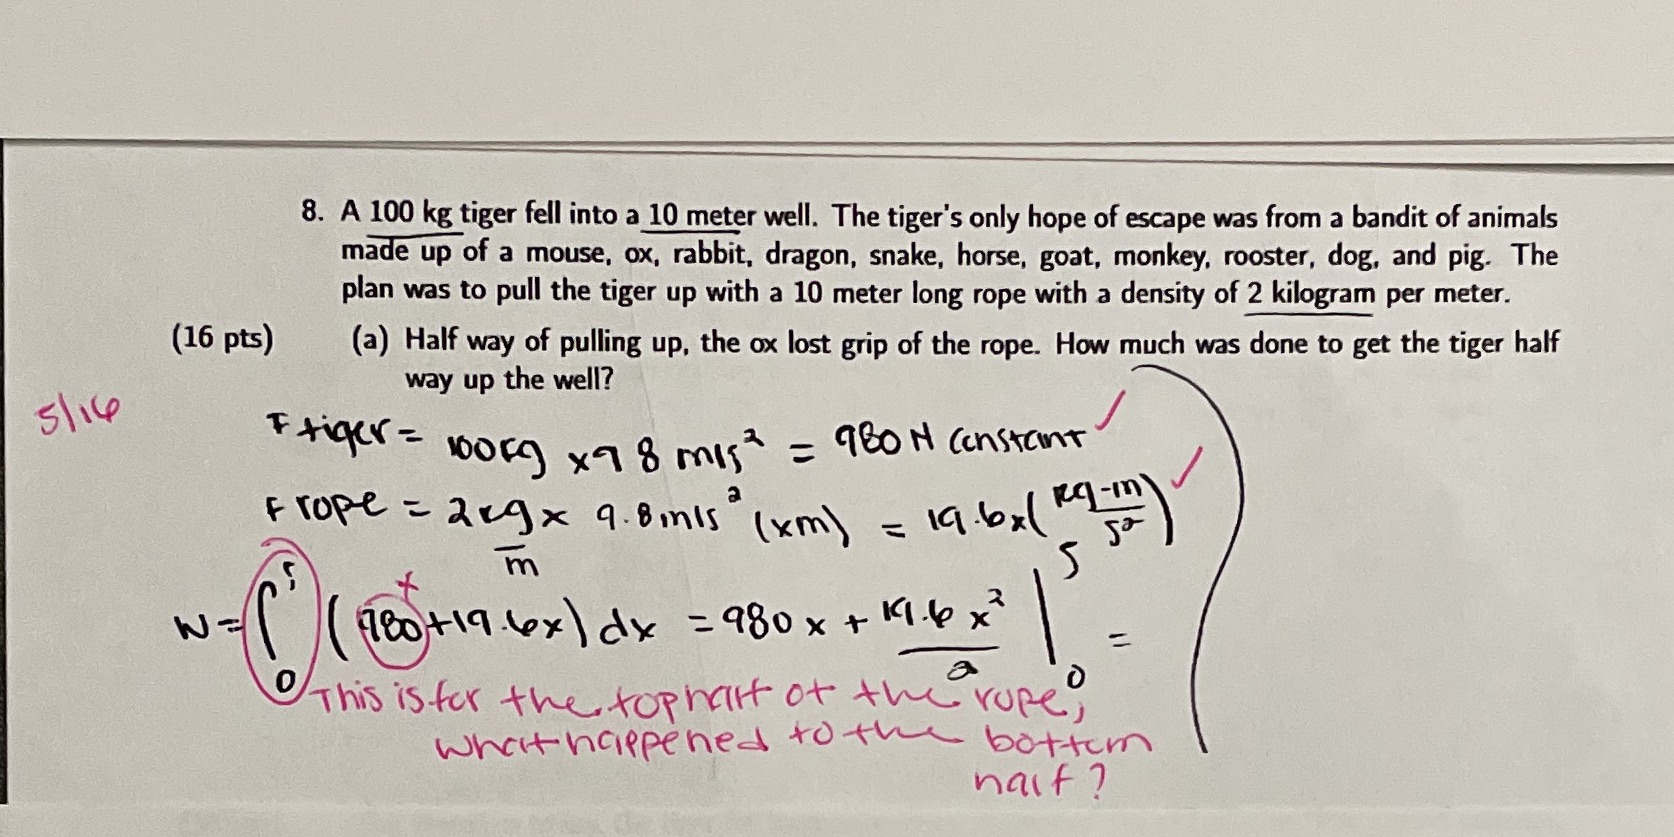 8. A 100 kg tiger fell into a 10 meter well. The tiger's only hope of escape was from a bandit of animals
made up of a mouse, ox, rabbit, dragon, snake, horse, goat, monkey, rooster, dog, and pig. The
plan was to pull the tiger up with a 10 meter long rope with a density of 2 kilogram per meter.
(16 pts) (a) Half way of pulling up, the ox lost grip of the rope. How much was done to get the tiger half
way up the well?
5/16
F tiger = 100kg x 9 8 m/s² = 980 N constant ✓
F rope = 2kg/m x 9.8 m/s² (xm) = 19.6x (kg-m/s²) ✓
W = ∫₀⁵ (980 + 19.6x) dx = 980x + 19.6x²/2 |₀⁵ =
This is for the top half of the rope,
what happened to the bottom
half?